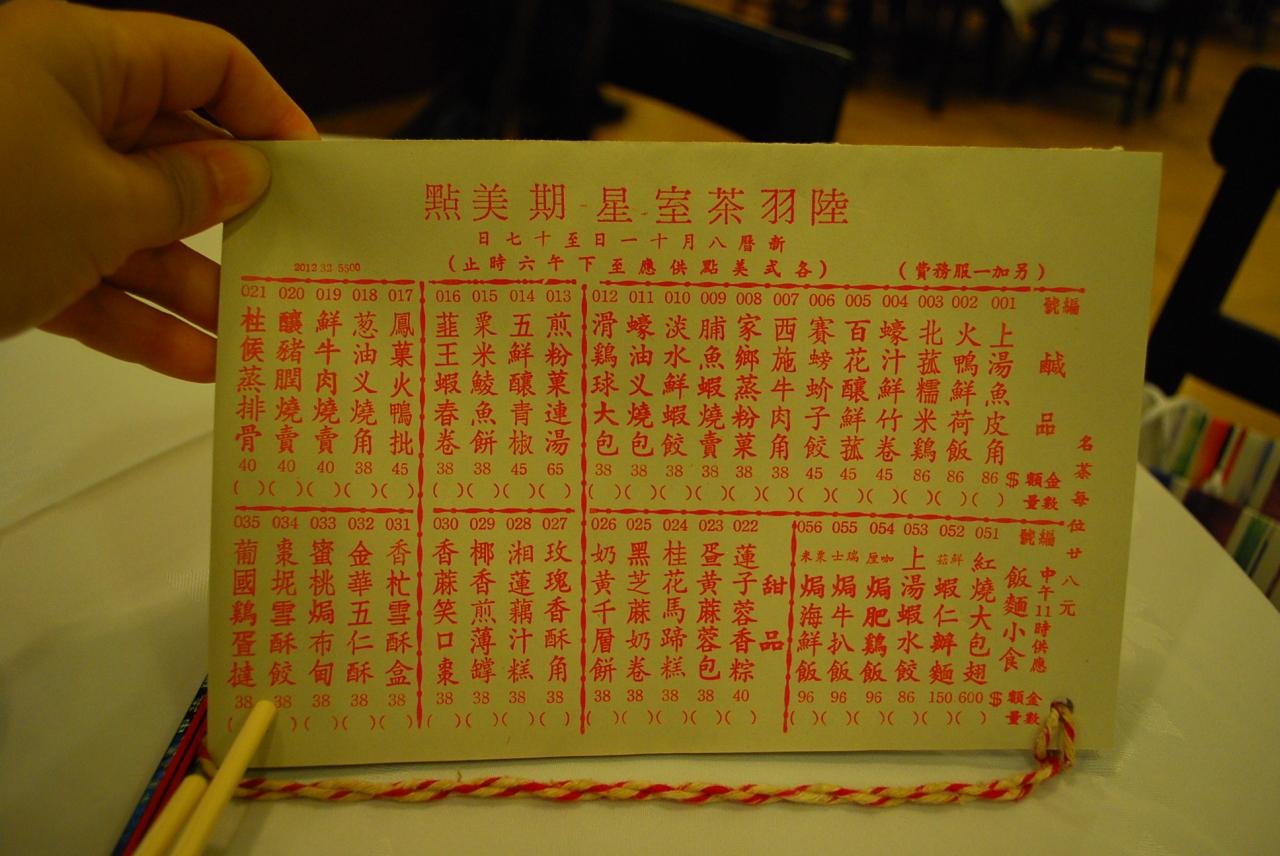 陸羽茶室星期美點
新曆八月十一日至十七日
(各式美點供應至下午六時止)
(另加一服務費)
2012 32-5500
名茶每位廿八元
編號
鹹品
金額$
數量
001 上湯魚皮角 86 ( )
002 火鴨鮮荷飯 86 ( )
003 北菰糯米鷄 86 ( )
004 蠔汁鮮竹卷 45 ( )
005 百花釀鮮菰 45 ( )
006 賽螃蚧子餃 45 ( )
007 西施牛肉角 38 ( )
008 家鄉蒸粉菓 38 ( )
009 脯魚蝦燒賣 38 ( )
010 淡水鮮蝦餃 38 ( )
011 蠔油义燒包 38 ( )
012 滑鷄球大包 38 ( )
013 煎粉菓連湯 65 ( )
014 五鮮釀青椒 45 ( )
015 粟米鯪魚餅 38 ( )
016 韮王蝦春卷 38 ( )
017 鳳菓火鴨批 45 ( )
018 葱油义燒角 38 ( )
019 鮮牛肉燒賣 40 ( )
020 釀豬膶燒賣 40 ( )
021 柱侯蒸排骨 40 ( )
編號
飯麵小食
中午11時供應
金額$
數量
051 紅燒大包翅 600 ( )
052 鮮菇蝦仁辦麵 150 ( )
053 上湯蝦水餃 86 ( )
054 咖厘焗肥鷄飯 96 ( )
055 瑞士焗牛扒飯 96 ( )
056 粟米焗海鮮飯 96 ( )
甜品
022 蓮子蓉香粽 40 ( )
023 蛋黃蔴蓉包 38 ( )
024 桂花馬蹄糕 38 ( )
025 黑芝蔴奶卷 38 ( )
026 奶黃千層餅 38 ( )
027 玫瑰香酥角 38 ( )
028 湘蓮藕汁糕 38 ( )
029 椰香煎薄罉 38 ( )
030 香蔴笑口棗 38 ( )
031 香杧雪酥盒 38 ( )
032 金華五仁酥 38 ( )
033 蜜桃焗布甸 38 ( )
034 棗坭雪酥餃 38 ( )
035 葡國鷄蛋撻 38 ( )